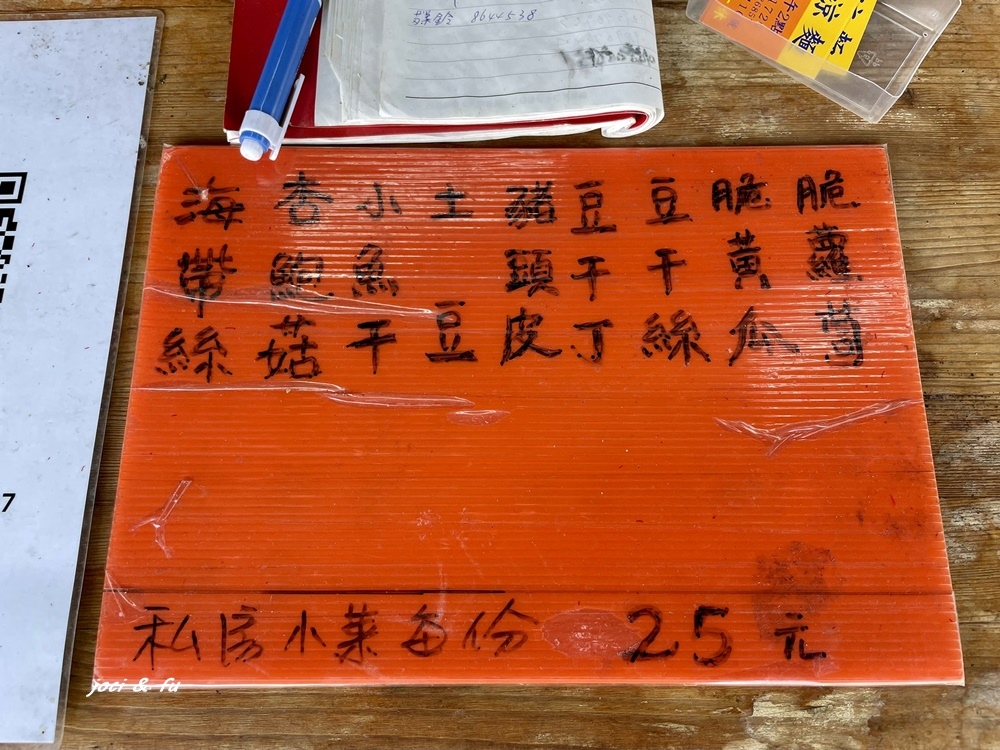 8644538
涼麵
脆蘿蔔
脆黃瓜
豆干絲
豆干丁
豬頭皮
土豆
小魚干
杏鮑菇
海帶絲
私房小菜每份 25元
7
joci & fu